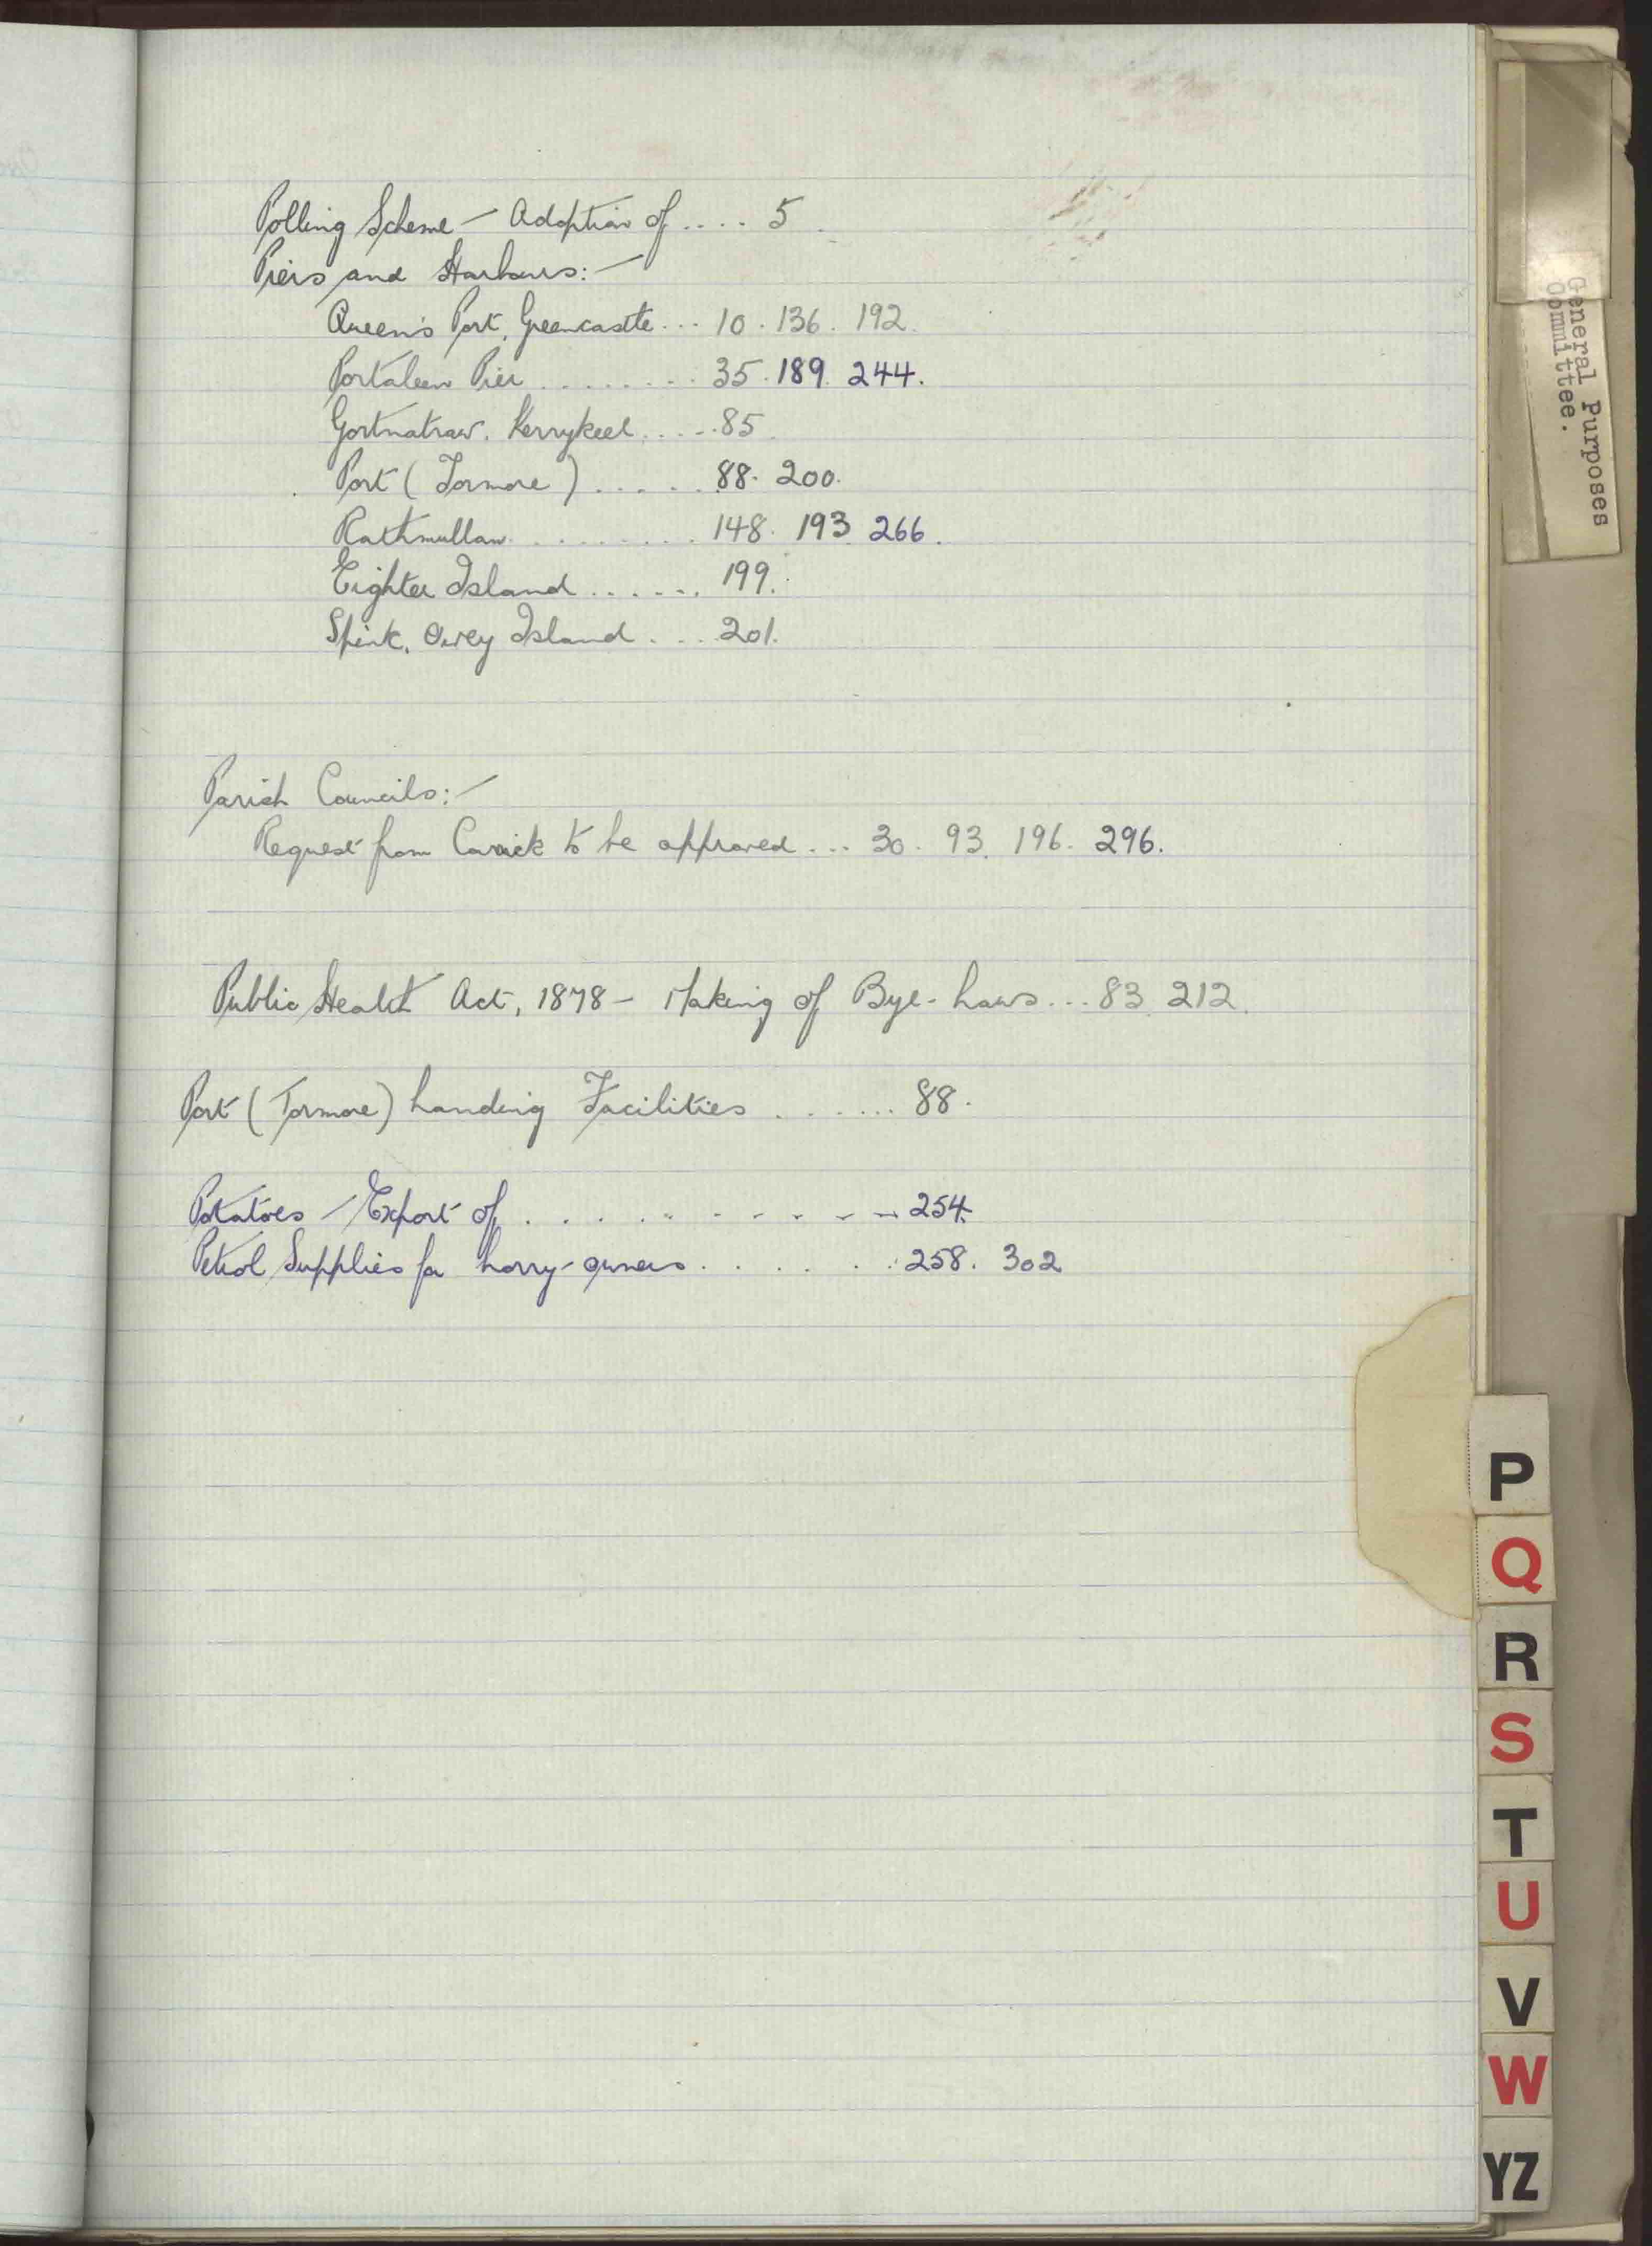 Polling Scheme - Adoption of .... 5
Piers and Harbours:-
Queen's Port, Greencastle ... 10. 136. 192.
Portaleen Pier ........ 35. 189. 244.
Gortnatraw, Kerrykeel ..... 85.
Port (Tormore) ...... 88. 200.
Rathmullan ......... 148. 193. 266.
Eighter Island ...... 199.
Spink, Owey Island .... 201.
Parish Councils:-
Request from Carrick to be approved ... 30. 93. 196. 296.
Public Health Act, 1878 - Making of Bye-Laws ... 83. 212.
Port (Tormore) Landing Facilities ....... 88.
Potatoes - Export of ............ 254.
Petrol Supplies for Lorry-owners ....... 258. 302
General Purposes
Committee.
P
Q
R
S
T
U
V
W
YZ